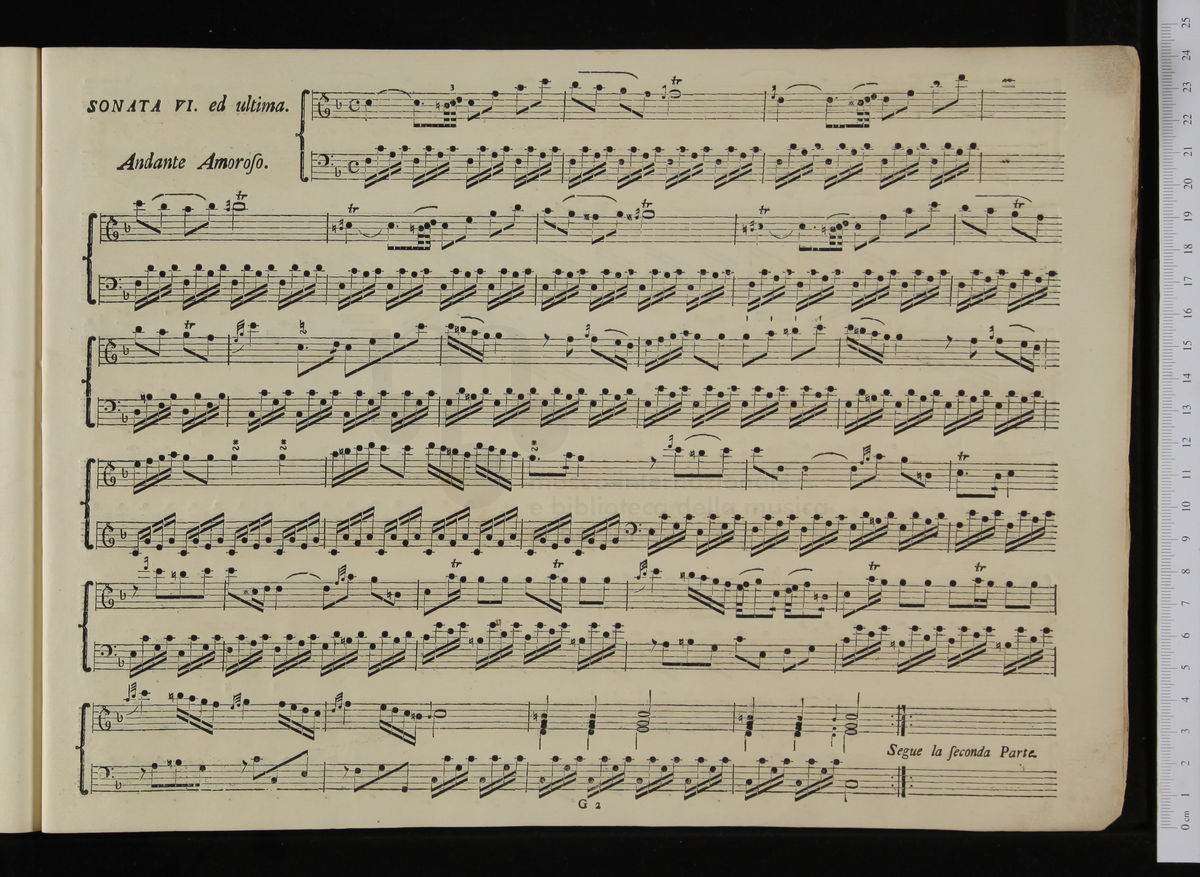 SONATA VI. ed ultima.
Andante Amoroſo.
Segue la ſeconda Parte.
G 2
e biblioteca della musica
0 cm 1 2 3 4 5 6 7 8 9 10 11 12 13 14 15 16 17 18 19 20 21 22 23 24 25